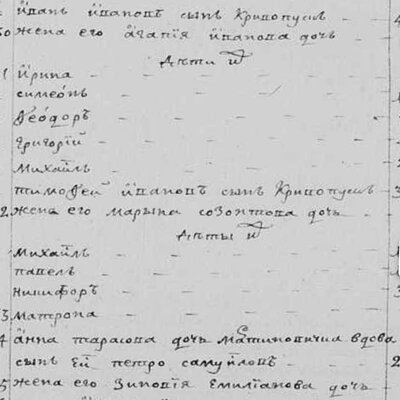 їванъ ївановъ сынъ Криворусъ 4
50 жена его агапїя їванова дочь
дѣти їх
1 їрина
симеонъ
Ѳеодоръ
григорїй
михайлъ 1
тимоѳей ївановъ сынъ Криворусъ 3
2 жена его марына созонтова дочь
дѣты їх
михайлъ 1
павелъ 1
никифоръ
3 матрона
4 анна тарасова дочь вдова
сынъ ей петро самуйловъ 2
5 жена его зиновїя емилїанова дочь